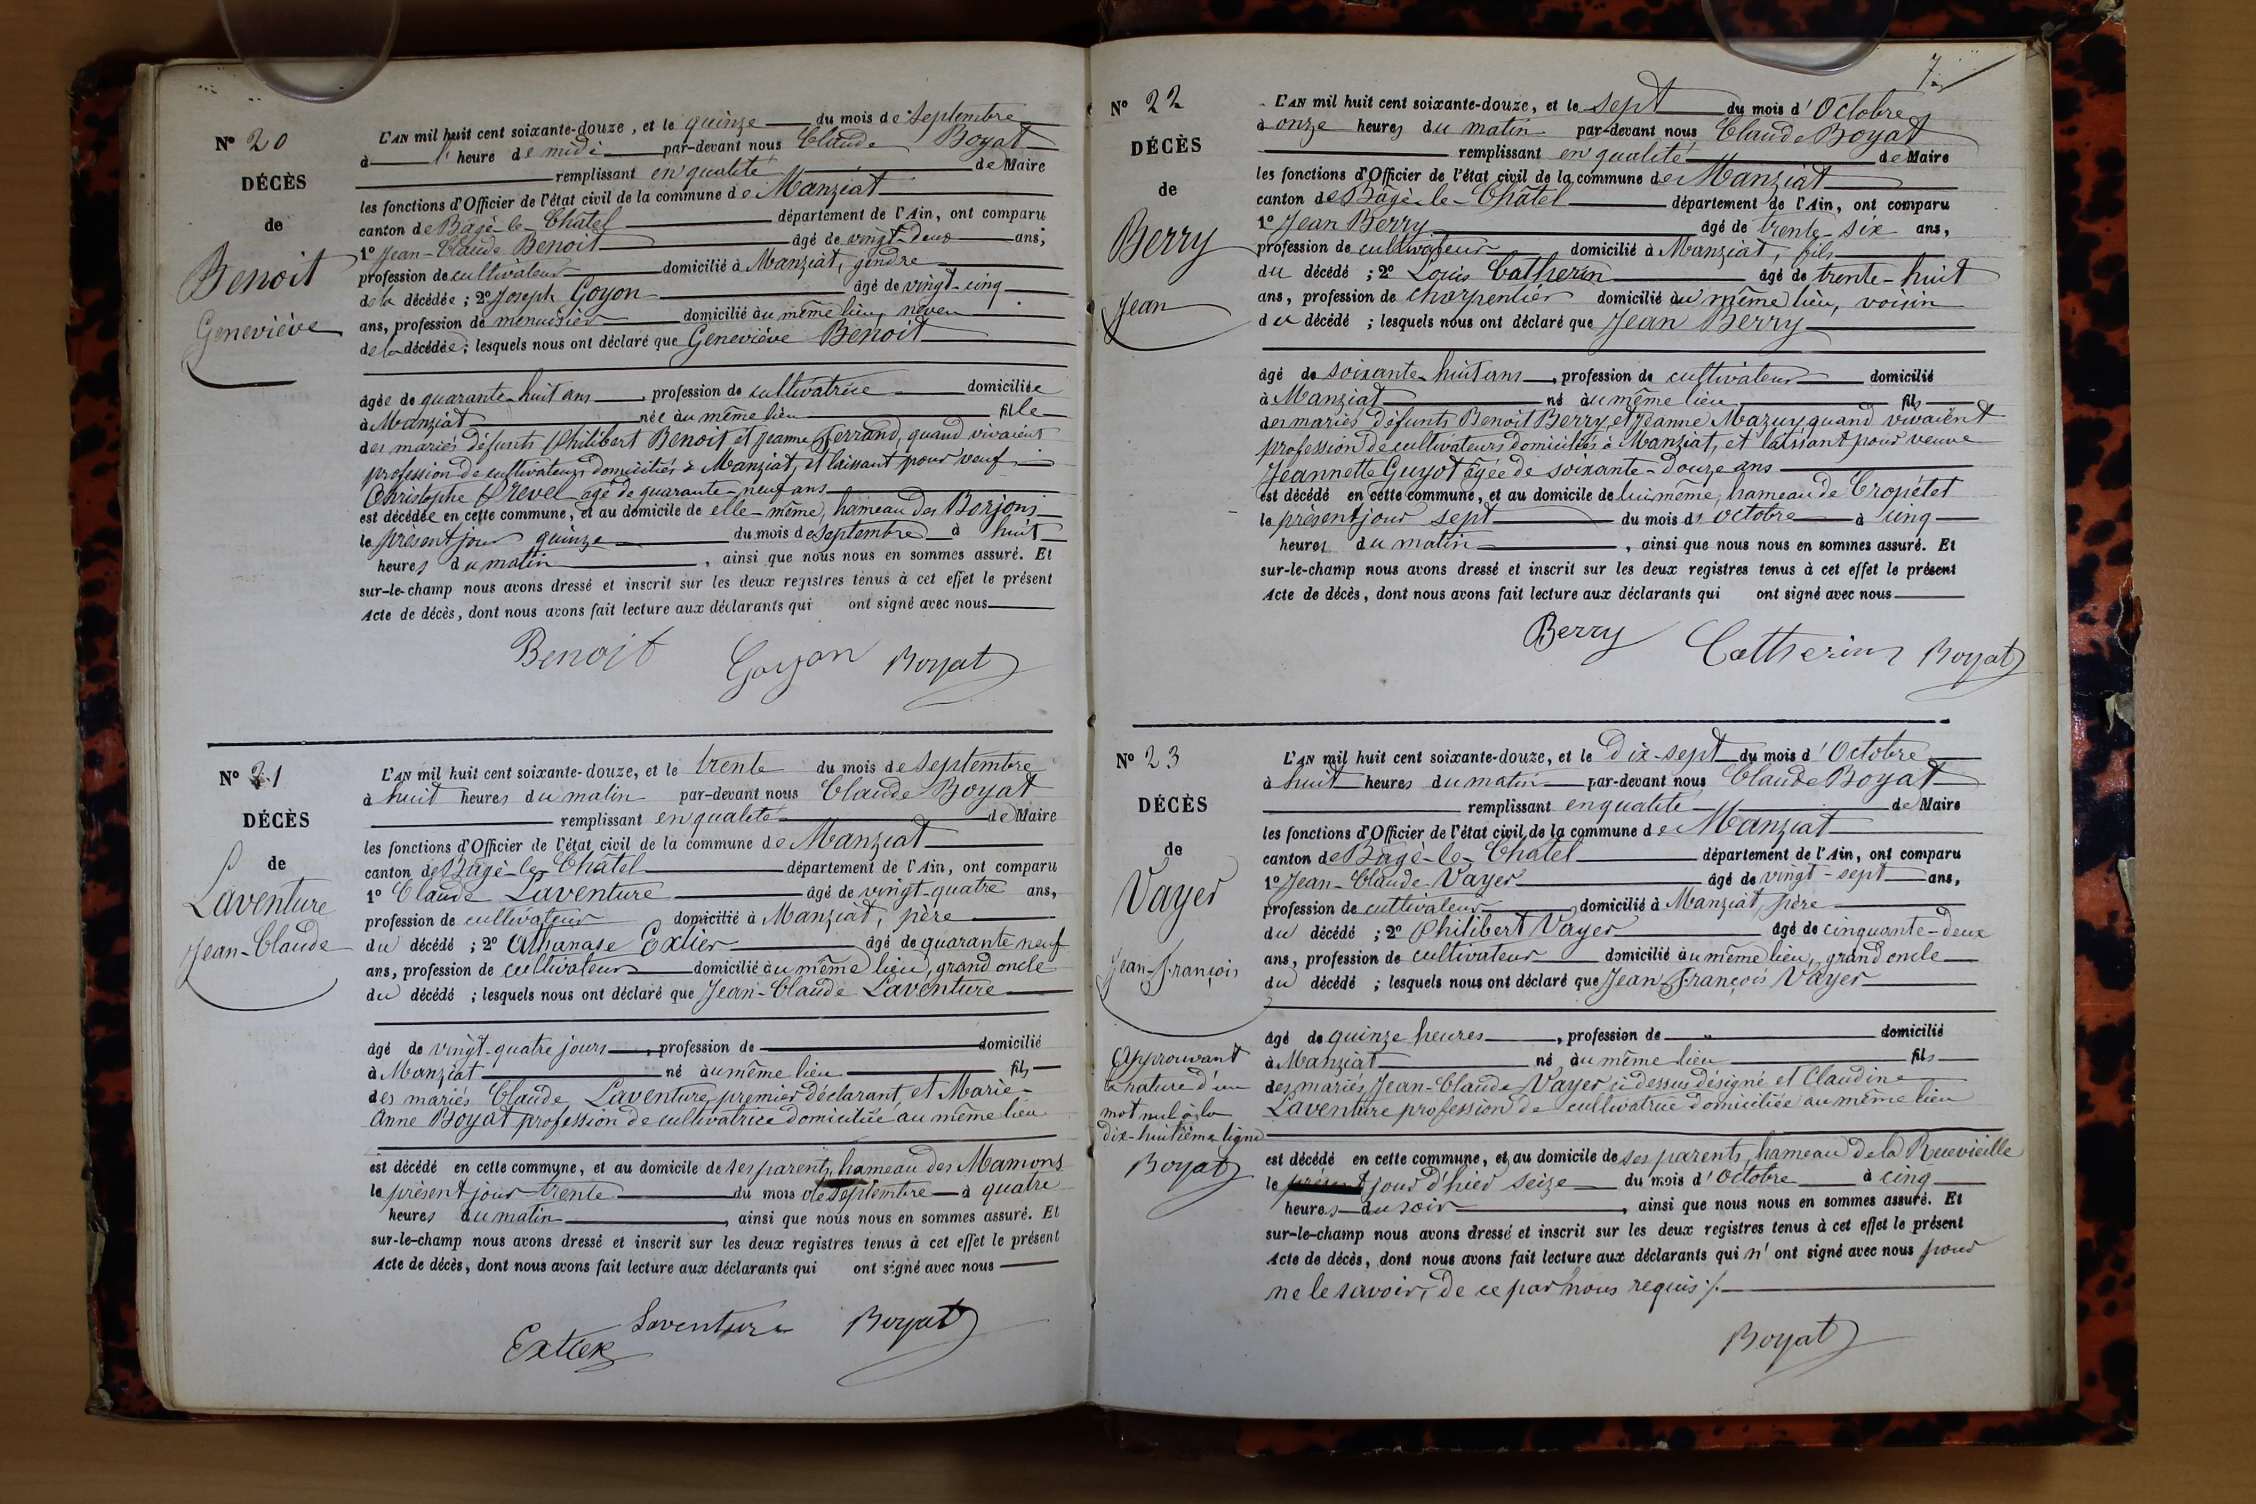 N° 20
DÉCÈS
de
Benoit
Geneviève
L'AN mil huit cent soixante-douze, et le quinze du mois de Septembre
à l' heure de midi par-devant nous Claude Boyat
remplissant en qualité de Maire
les fonctions d'Officier de l'état civil de la commune de Manziat
canton de Bâgé-le-Châtel département de l'Ain, ont comparu
1° Jean-Claude Benoit âgé de vingt-deux ans,
profession de cultivateur domicilié à Manziat, gendre
de la décédée ; 2° Joseph Goyon âgé de vingt-cinq
ans, profession de menuisier domicilié au même lieu, neveu
de la décédée ; lesquels nous ont déclaré que Geneviève Benoit
âgée de quarante-huit ans, profession de cultivatrice domiciliée
à Manziat née au même lieu fille
des mariés défunts Philibert Benoit et Jeanne Ferrand, quand vivaient
profession de cultivateurs domiciliés à Manziat, et laissant pour veuf
Christophe Prevel âgé de quarante-neuf ans
est décédée en cette commune, et au domicile de elle-même, hameau des Borjons
le présent jour quinze du mois de Septembre à huit
heures du matin, ainsi que nous nous en sommes assuré. Et
sur-le-champ nous avons dressé et inscrit sur les deux registres tenus à cet effet le présent
Acte de décès, dont nous avons fait lecture aux déclarants qui ont signé avec nous
Benoit Goyon Boyat
N° 21
DÉCÈS
de
Laventure
Jean-Claude
L'AN mil huit cent soixante-douze, et le trente du mois de Septembre
à huit heures du matin par-devant nous Claude Boyat
remplissant en qualité de Maire
les fonctions d'Officier de l'état civil de la commune de Manziat
canton de Bâgé-le-Châtel département de l'Ain, ont comparu
1° Claude Laventure âgé de vingt-quatre ans,
profession de cultivateur domicilié à Manziat, père
du décédé ; 2° Athanase Extier âgé de quarante neuf
ans, profession de cultivateur domicilié au même lieu, grand oncle
du décédé ; lesquels nous ont déclaré que Jean-Claude Laventure
âgé de vingt-quatre jours, profession de domicilié
à Manziat né au même lieu fils
des mariés Claude Laventure, premier déclarant, et Marie-
Anne Boyat profession de cultivatrice domiciliée au même lieu
est décédé en cette commune, et au domicile de ses parents, hameau des Mamons
le présent jour trente du mois de Septembre à quatre
heures du matin, ainsi que nous nous en sommes assuré. Et
sur-le-champ nous avons dressé et inscrit sur les deux registres tenus à cet effet le présent
Acte de décès, dont nous avons fait lecture aux déclarants qui ont signé avec nous
Extier Laventure Boyat
7
N° 22
DÉCÈS
de
Berry
Jean
L'AN mil huit cent soixante-douze, et le sept du mois d'Octobre
à onze heures du matin par-devant nous Claude Boyat
remplissant en qualité de Maire
les fonctions d'Officier de l'état civil de la commune de Manziat
canton de Bâgé-le-Châtel département de l'Ain, ont comparu
1° Jean Berry âgé de trente-six ans,
profession de cultivateur domicilié à Manziat, fils
du décédé ; 2° Louis Catherin âgé de trente-huit
ans, profession de charpentier domicilié au même lieu, voisin
du décédé ; lesquels nous ont déclaré que Jean Berry
âgé de soixante-huit ans, profession de cultivateur domicilié
à Manziat né au même lieu fils
des mariés défunts Benoit Berry, et Jeanne Mazuy quand vivaient
profession de cultivateurs domiciliés à Manziat, et laissant pour veuve
Jeannette Guyot âgée de soixante-douze ans
est décédé en cette commune, et au domicile de lui même, hameau de Cropétet
le présent jour sept du mois d'Octobre à cinq
heures du matin, ainsi que nous nous en sommes assuré. Et
sur-le-champ nous avons dressé et inscrit sur les deux registres tenus à cet effet le présent
Acte de décès, dont nous avons fait lecture aux déclarants qui ont signé avec nous
Berry Catherin Boyat
N° 23
DÉCÈS
de
Vayer
Jean-François
Approuvant
la rature d'un
mot nul à la
dix-huitième ligne
Boyat
L'AN mil huit cent soixante-douze, et le Dix-sept du mois d'Octobre
à huit heures du matin par-devant nous Claude Boyat
remplissant en qualité de Maire
les fonctions d'Officier de l'état civil de la commune de Manziat
canton de Bâgé-le-Châtel département de l'Ain, ont comparu
1° Jean-Claude Vayer âgé de vingt-sept ans,
profession de cultivateur domicilié à Manziat, père
du décédé ; 2° Philibert Vayer âgé de cinquante-deux
ans, profession de cultivateur domicilié au même lieu, grand oncle
du décédé ; lesquels nous ont déclaré que Jean François Vayer
âgé de quinze heures, profession de " domicilié
à Manziat né au même lieu fils
des mariés Jean-Claude Vayer ci-dessus désigné et Claudine
Laventure profession de cultivatrice domiciliée au même lieu
est décédé en cette commune, et au domicile de ses parents, hameau de la Recevieille
le présent jour d'hier seize du mois d'Octobre à cinq
heures du soir, ainsi que nous nous en sommes assuré. Et
sur-le-champ nous avons dressé et inscrit sur les deux registres tenus à cet effet le présent
Acte de décès, dont nous avons fait lecture aux déclarants qui n'ont signé avec nous pour
ne le savoir, de ce par nous requis ./.
Boyat